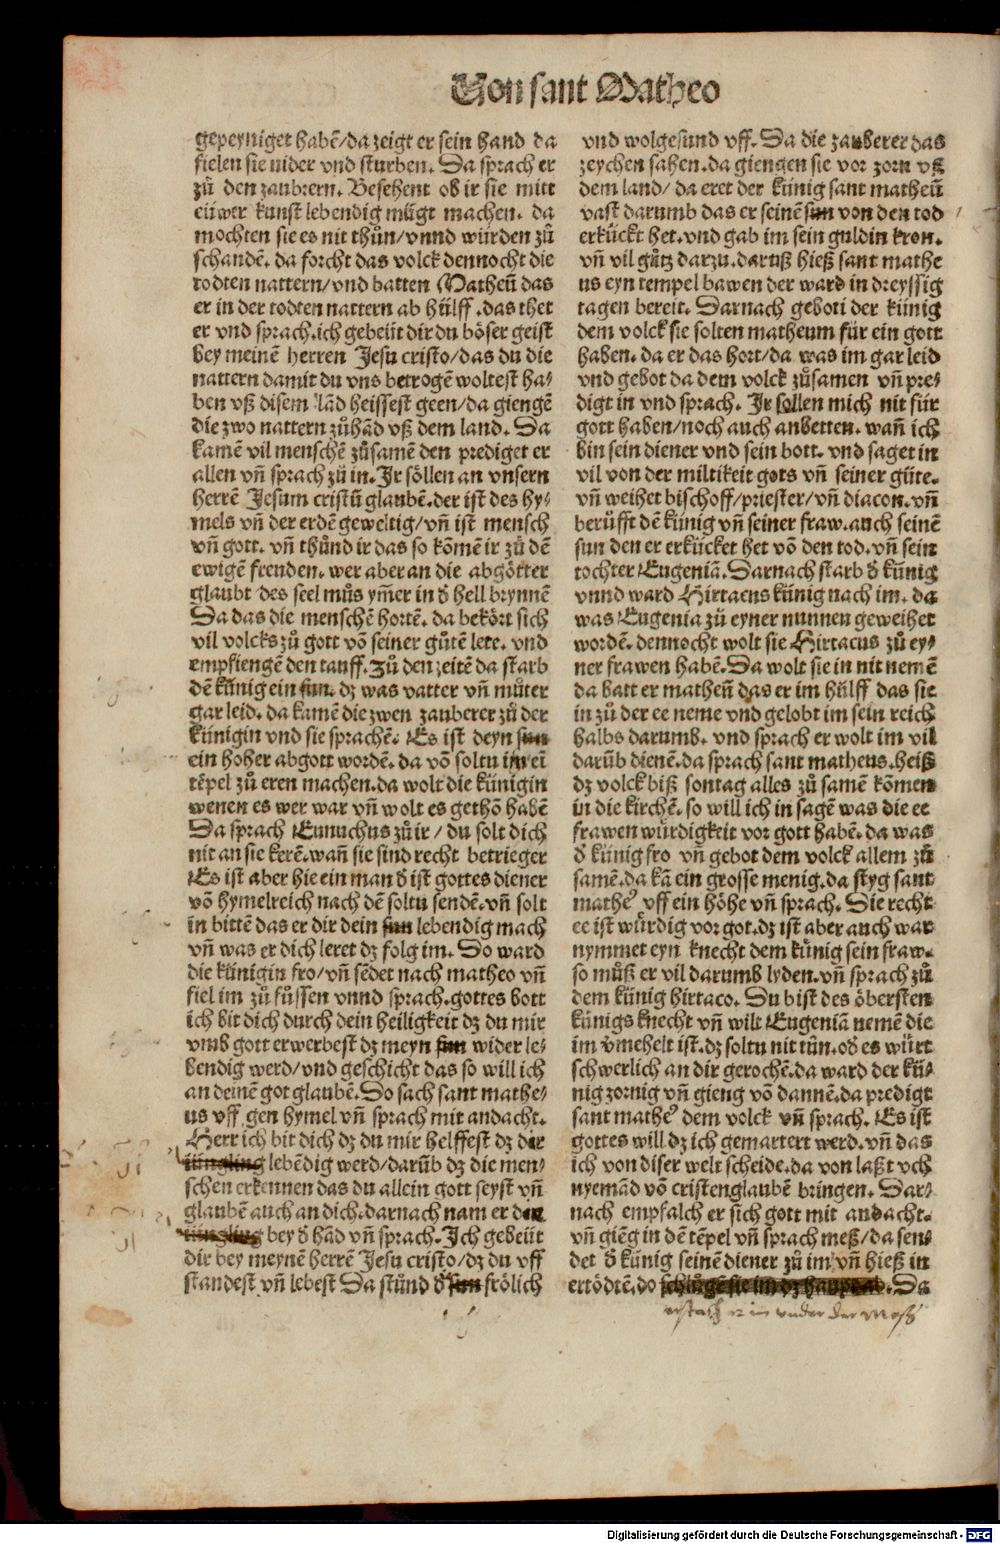 Von sant Matheo
gepeyniget habē/da zeigt er sein hand da
fielen sie nider vnd sturben. Da sprach er
zů den zaubrern. Besehent ob ir sie mitt
eüwer kunst lebendig mügt machen. da
mochten sie es nit thůn/vnnd würden zů
schandē. da forcht das volck dennocht die
todten nattern/vnd batten Matheū das
er in der todten nattern ab hülff .das thet
er vnd sprach.ich gebeüt dir du böser geist
bey meinē herren Jesu cristo/das du die
nattern damit du vns betrogē woltest ha⸗
ben vß disem lād heissest geen/da giengē
die zwo nattern zůhād vß dem land. Da
kamē vil menschē zůsamē den prediget er
allen vñ sprach zů in. Ir söllen an vnsern
herrē Jesum cristū glaubē.der ist des hy⸗
mels vñ der erdē geweltig/vñ ist mensch
vñ gott. vñ thůnd ir das so kōmē ir zů dē
ewigē freuden. wer aber an die abgötter
glaubt des seel můs ym̄er in d̓ hell brynnē
Da das die menschē hortē. da bekört sich
vil volcks zů gott vō seiner gůtē lere. vnd
empfiengē den tauff. Zů den zeitē da starb
dē künig ein sun. dz was vatter vñ můter
gar leid. da kamē die zwen zauberer zů der
künigin vnd sie sprachē. Es ist deyn sun
ein hoher abgott wordē. da vō soltu im eī
tēpel zů eren machen.da wolt die künigin
wenen es wer war vñ wolt es gethō habē
Da sprach Eunuchus zů ir / du solt dich
nit an sie kerē.wañ sie sind recht betrieger
Es ist aber hie ein man d̓ ist gottes diener
vō hymelreich nach dē soltu sendē.vñ solt
in bittē das er dir dein sun lebendig mach
vñ was er dich leret dz folg im. Do ward
die künigin fro/vñ sēdet nach matheo vñ
fiel im zů fůssen vnnd sprach.gottes bott
ich bit dich durch dein heiligkeit dz du mir
vmb gott erwerbest dz meyn sun wider le⸗
bendig werd/vnd geschicht das so will ich
an deinē got glaubē. Do sach sant mathe⸗
us vff gen hymel vñ sprach mit andacht.
Herr ich bit dich dz du mir helffest dz der
iüngling lebēdig werd/darūb dz die men⸗
schen erkennen das du allein gott seyst vñ
glaubē auch an dich. darnach nam er den
iüngling bey d̓ hād vñ sprach. Ich gebeüt
dir bey meynē herrē Jesu cristo/dz du vff
standest vñ lebest Da stůnd d̓ sun frölich
vnd wolgesund vff. Da die zauberer das
zeychen sahen.da giengen sie vor zorn vß
dem land/ da eret der künig sant matheū
vast darumb das er seinē sun von den tod
erkückt het.vnd gab im sein guldin kron.
vñ vil gůtz darzu.daruß hieß sant mathe
us eyn tempel bawen der ward in dreyssig
tagen bereit. Darnach gebott der künig
dem volck sie solten matheum für ein gott
haben. da er das hort/da was im gar leid
vnd gebot da dem volck zůsamen vñ pre⸗
digt in vnd sprach. Ir sollen mich nit für
gott haben/noch auch anbetten. wañ ich
bin sein diener vnd sein bott. vnd saget in
vil von der miltikeit gots vñ seiner güte.
vñ weihet bischoff/priester/vñ diacon.vñ
berůfft dē künig vñ seiner fraw.auch seinē
sun den er erkücket het vō den tod.vñ sein
tochter Eugeniā. Darnach starb d̓ künig
vnnd ward Hirtacus künig nach im. da
was Eugenia zů eyner nunnen geweihet
wordē. dennocht wolt sie Hirtacus zů ey⸗
ner frawen habē. Da wolt sie in nit nemē
da batt er matheū das er im hülff das sie
in zů der ee neme vnd gelobt im sein reich
halbs darumb. vnd sprach er wolt im vil
darūb dienē.da sprach sant matheus.heiß
dz volck biß sontag alles zů samē kōmen
in die kirchē. so will ich in sagē was die ee
frawen würdigkeit vor gott habē. da was
d̓ künig fro vñ gebot dem volck allem zů
samē.da kā ein grosse menig.da styg sant
mathe⁹ vff ein höhe vñ sprach. Die recht
ee ist würdig vor got.dz ist aber auch war
nymmet eyn knecht dem künig sein fraw.
so můß er vil darumb lyden.vñ sprach zů
dem künig hirtaco. Du bist des öbersten
künigs knecht vñ wilt Eugeniā nemē die
im v̓mehelt ist.dz soltu nit tůn.ob es würt
schwerlich an dir gerochē.da ward der kü⸗
nig zornig vñ gieng vō dannē.da predigt
sant mathe⁹ dem volck vñ sprach. Es ist
gottes will dz ich gemartert werd.vñ das
ich von diser welt scheide.da von laßt vch
nyemād vō cristenglaubē bringen. Dar⸗
nach empfalch er sich gott mit andacht.
vñ giēg in dē tēpel vñ sprach meß/da sen⸗
det d̓ künig seinē diener zů im vñ hieß in
ertödtē.do schlůgē sie im dz haupt ab. Da
erstach er in vnder der Mess
Digitalisierung gefördert durch die Deutsche Forschungsgemeinschaft - DFG